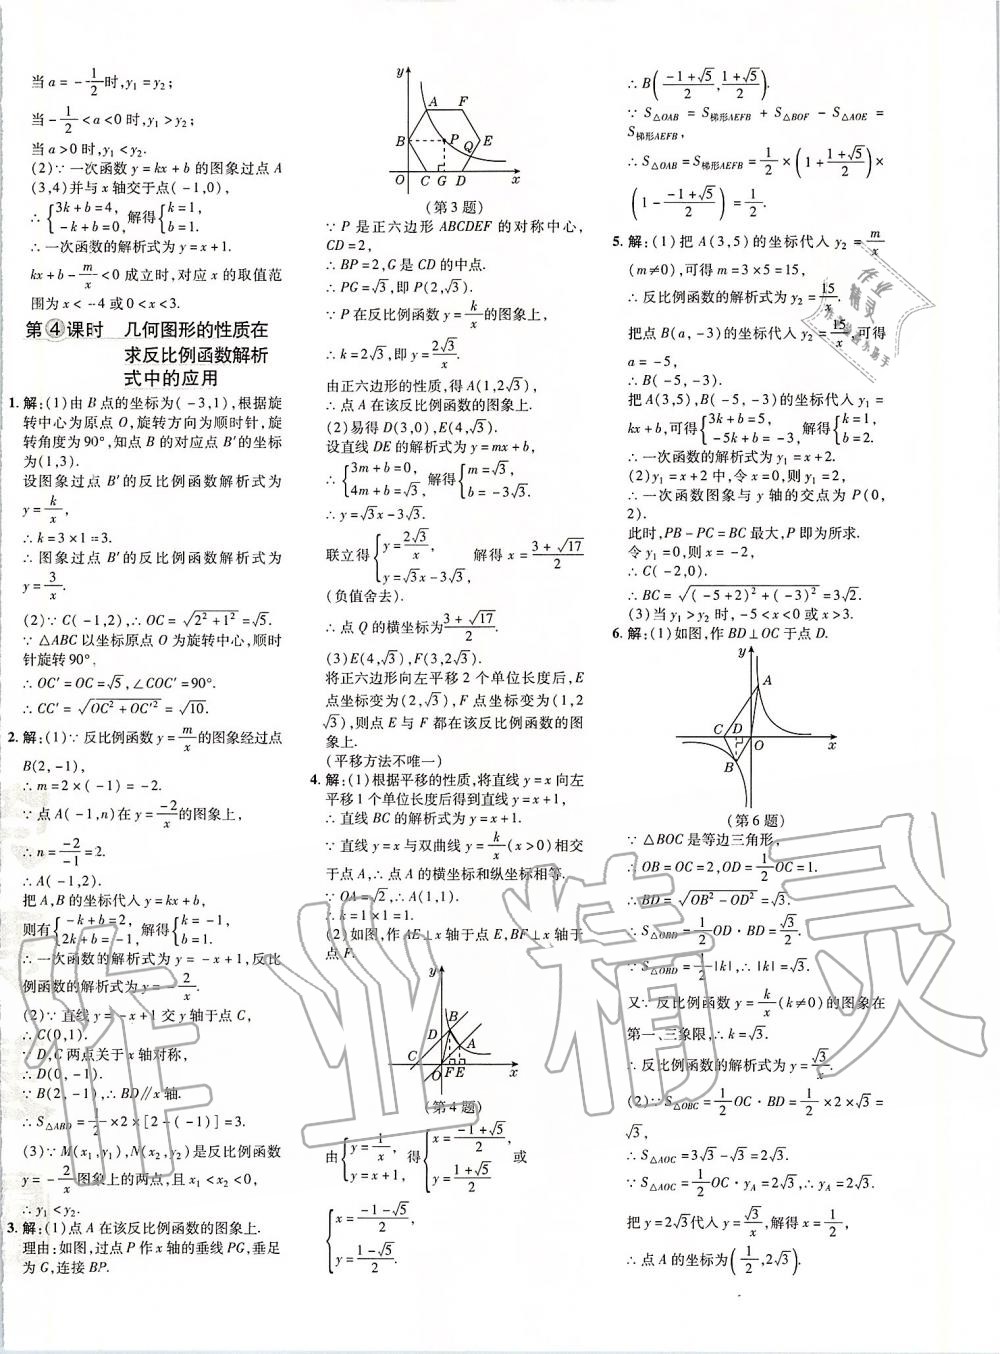 当a=-1/2时,y₁=y₂;
当-1/2<a<0时,y₁>y₂;
当a>0时,y₁<y₂.
(2)∵一次函数y=kx+b的图象过点A
(3,4)并与x轴交于点(-1,0),
∴{3k+b=4, -k+b=0, 解得{k=1, b=1.
∴一次函数的解析式为y=x+1.
kx+b-m/x<0成立时,对应x的取值范
围为x<-4或0<x<3.
第④课时 几何图形的性质在
求反比例函数解析
式中的应用
1.解:(1)由B点的坐标为(-3,1),根据旋
转中心为原点O,旋转方向为顺时针,旋
转角度为90°,知点B的对应点B′的坐标
为(1,3).
设图象过点B′的反比例函数解析式为
y=k/x,
∴k=3×1=3.
∴图象过点B′的反比例函数解析式为
y=3/x.
(2)∵C(-1,2),∴OC=√(2²+1²)=√5.
∵△ABC以坐标原点O为旋转中心,顺时
针旋转90°,
∴OC′=OC=√5,∠COC′=90°.
∴CC′=√(OC²+OC′²)=√10.
2.解:(1)∵反比例函数y=m/x的图象经过点
B(2,-1),
∴m=2×(-1)=-2.
∵点A(-1,n)在y=-2/x的图象上,
∴n=-2/-1=2.
∴A(-1,2).
把A,B的坐标代入y=kx+b,
则有{-k+b=2, 2k+b=-1, 解得{k=-1, b=1.
∴一次函数的解析式为y=-x+1,反比
例函数的解析式为y=-2/x.
(2)∵直线y=-x+1交y轴于点C,
∴C(0,1).
∵D,C两点关于x轴对称,
∴D(0,-1).
∵B(2,-1),∴BD∥x轴.
∴S△ABD=1/2×2×[2-(-1)]=3.
(3)∵M(x₁,y₁),N(x₂,y₂)是反比例函数
y=-2/x图象上的两点,且x₁<x₂<0,
∴y₁<y₂.
3.解:(1)点A在该反比例函数的图象上.
理由:如图,过点P作x轴的垂线PG,垂足
为G,连接BP.
y A F B P E Q O C G D x
(第3题)
∵P是正六边形ABCDEF的对称中心,
CD=2,
∴BP=2,G是CD的中点.
∴PG=√3,即P(2,√3).
∵P在反比例函数y=k/x的图象上,
∴k=2√3,即y=2√3/x.
由正六边形的性质,得A(1,2√3),
∴点A在该反比例函数的图象上.
(2)易得D(3,0),E(4,√3).
设直线DE的解析式为y=mx+b,
∴{3m+b=0, 4m+b=√3, 解得{m=√3, b=-3√3.
∴y=√3x-3√3.
联立得{y=2√3/x, y=√3x-3√3, 解得x=(3+√17)/2
(负值舍去).
∴点Q的横坐标为(3+√17)/2.
(3)E(4,√3),F(3,2√3).
将正六边形向左平移2个单位长度后,E
点坐标变为(2,√3),F点坐标变为(1,2
√3),则点E与F都在该反比例函数的图
象上.
(平移方法不唯一)
4.解:(1)根据平移的性质,将直线y=x向左
平移1个单位长度后得到直线y=x+1,
∴直线BC的解析式为y=x+1.
∵直线y=x与双曲线y=k/x(x>0)相交
于点A,∴点A的横坐标和纵坐标相等.
∵OA=√2,∴A(1,1).
∴k=1×1=1.
(2)如图,作AE⊥x轴于点E,BF⊥x轴于
点F.
y B D A C O F E x
(第4题)
由{y=1/x, y=x+1, 得{x=(-1+√5)/2, y=(1+√5)/2 或
{x=(-1-√5)/2, y=(1-√5)/2.
∴B((-1+√5)/2,(1+√5)/2).
∵S△OAB=S梯形AEFB+S△BOF-S△AOE=
S梯形AEFB,
∴S△OAB=S梯形AEFB=1/2×(1+(1+√5)/2)×
(1-(-1+√5)/2)=1/2.
5.解:(1)把A(3,5)的坐标代入y₂=m/x
(m≠0),可得m=3×5=15,
∴反比例函数的解析式为y₂=15/x.
把点B(a,-3)的坐标代入y₂=15/x,可得
a=-5,
∴B(-5,-3).
把A(3,5),B(-5,-3)的坐标代入y₁=
kx+b,可得{3k+b=5, -5k+b=-3, 解得{k=1, b=2.
∴一次函数的解析式为y₁=x+2.
(2)y₁=x+2中,令x=0,则y₁=2,
∴一次函数图象与y轴的交点为P(0,
2).
此时,PB-PC=BC最大,P即为所求.
令y₁=0,则x=-2,
∴C(-2,0).
∴BC=√((-5+2)²+(-3)²)=3√2.
(3)当y₁>y₂时,-5<x<0或x>3.
6.解:(1)如图,作BD⊥OC于点D.
y A C D O x B
(第6题)
∵△BOC是等边三角形,
∴OB=OC=2,OD=1/2OC=1.
∴BD=√(OB²-OD²)=√3.
∴S△OBD=1/2OD·BD=√3/2.
∵S△OBD=1/2|k|,∴|k|=√3.
又∵反比例函数y=k/x(k≠0)的图象在
第一、三象限,∴k=√3.
∴反比例函数的解析式为y=√3/x.
(2)∵S△OBC=1/2OC·BD=1/2×2×√3=
√3,
∴S△AOC=3√3-√3=2√3.
∵S△AOC=1/2OC·yA=2√3,∴yA=2√3.
把y=2√3代入y=√3/x,解得x=1/2,
∴点A的坐标为(1/2,2√3).
作业精灵
作业
精灵